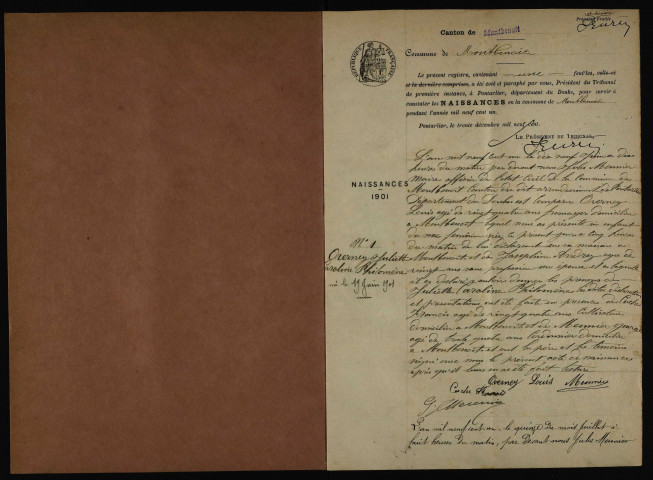 Canton de Montbenoit
Commune de Montbenoit
Le présent registre, contenant une feuilles, celle-ci
et la dernière comprises, a été coté et paraphé par nous, Président du Tribunal
de première instance, à Pontarlier, département du Doubs, pour servir à
constater les NAISSANCES en la commune de Montbenoit
pendant l'année mil neuf cent un.
Pontarlier, le trente décembre mil neuf cent
LE PRÉSIDENT DU TRIBUNAL,
NAISSANCES
1901
No 1
Juliette
Caroline Philomène
née le 19 Juin 1901
L'an mil neuf cent un le dix neuf Juin a dix
heures du matin par devant nous Jules Meunier
Maire officier de l'état civil de la Commune de
Montbenoit Canton du dit arrondissement de Pontarlier
Département du Doubs est comparu
Louis agé de vingt quatre ans fromager domicilié
a Montbenoit lequel nous a présenté un enfant
du sexe féminin née le présent jour a cinq heures
du matin de lui déclarant en sa maison a
Montbenoit et de Joséphine agée de
vingt ans sans profession son épouse et a laquelle
il a déclaré vouloir donner les prénoms de
Juliette Caroline Philomène
et présentation ont été faite en présence de
Francis agé de vingt quatre ans Cultivateur
domicilié a Montbenoit et de Meunier
agé de trente quatre ans domicilié
a Montbenoit et ont le père et les témoins
signé avec nous le présent acte de naissance
après qu'il leur en a été fait lecture
Louis Meunier
G. Meunier
L'an mil neuf cent un le quinze du mois Juillet à
huit heures du matin, par devant nous Jules Meunier